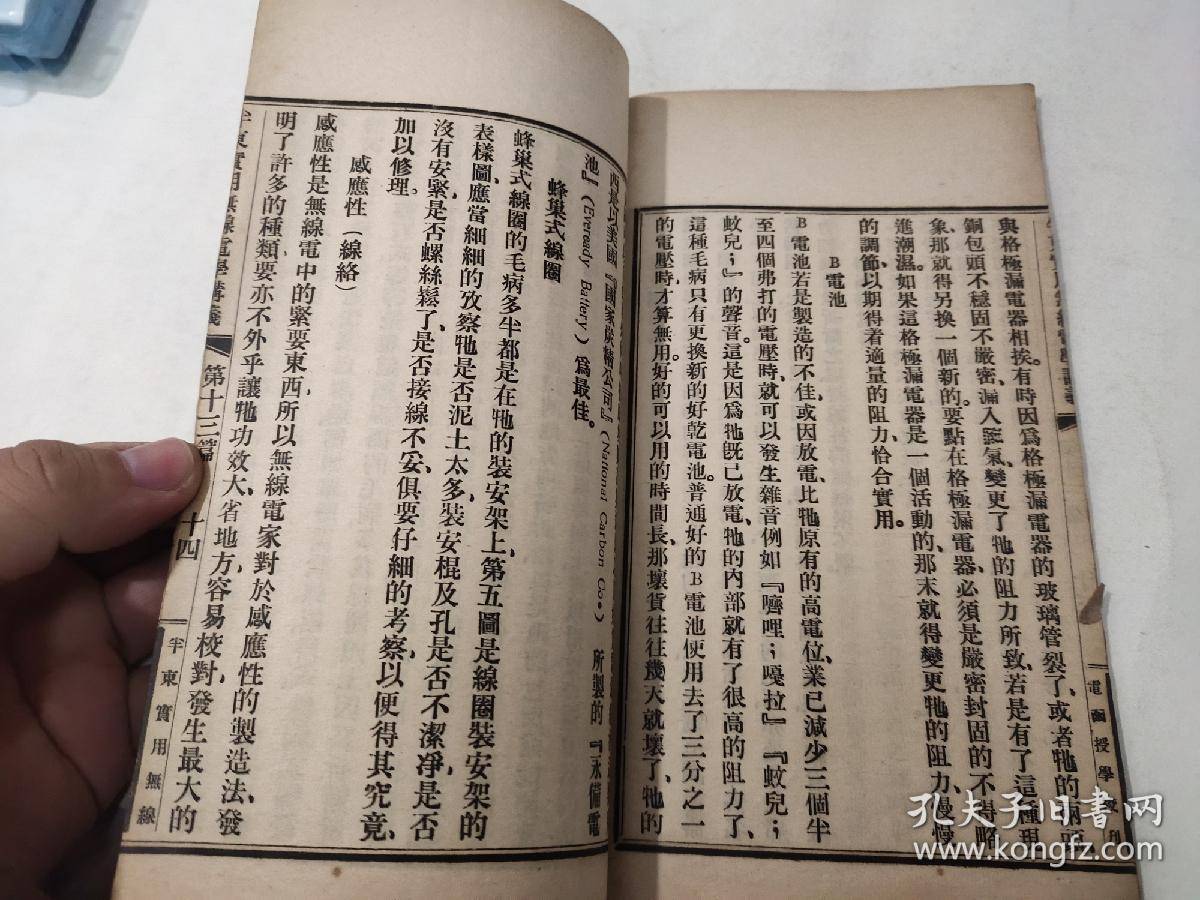 與格極漏電器相挨。有時因爲格極漏電器的玻璃管裂了、或者牠的兩頭
銅包頭不穩固不嚴密、漏入空氣、變更了牠的阻力所致、若是有了這種現
象那就得另換一個新的。要點在格極漏電器、必須是嚴密封固的、不得略
進潮濕。如果這格極漏電器是一個活動的、那末就得變更牠的阻力、慢慢
的調節、以期得着適量的阻力、恰合實用。
B電池
B電池若是製造的不佳、或因放電、比牠原有的高電位、業已減少三個半
至四個弗打的電壓時、就可以發生雜音例如『嚌哩；嘎拉』『蚊兒；
蚊兒；』的聲音、這是因爲牠旣已放電、牠的內部就有了很高的阻力了、
這種毛病只有更換新的好乾電池。普通好的B電池使用去了三分之一
的電壓時、才算無用、好的可以用的時間長、那壞貨往往幾天就壞了、牠的
電函授學校刊
美國『國家炭精公司』(National Carbon Co.)所製的『永備電
池』(Eveready Battery)爲最佳。
蜂巢式線圈
蜂巢式線圈的毛病多半都是在牠的裝安架上、第五圖是線圈裝安架的
表樣圖、應當細細的攷察牠是否泥土太多、裝安棍及孔是否不潔淨、是否
沒有安緊、是否螺絲鬆了、是否接線不妥、俱要仔細的考察、以便得其究竟、
加以修理。
感應性（線絡）
感應性是無線電中的緊要東西、所以無線電家對於感應性的製造法、發
明了許多的種類、要亦不外乎讓牠功效大、省地方、容易校對、發生最大的
芉東實用無線電學講義
第十三篇
十四
芉東實用無線
孔夫子旧书网
www.kongfz.com